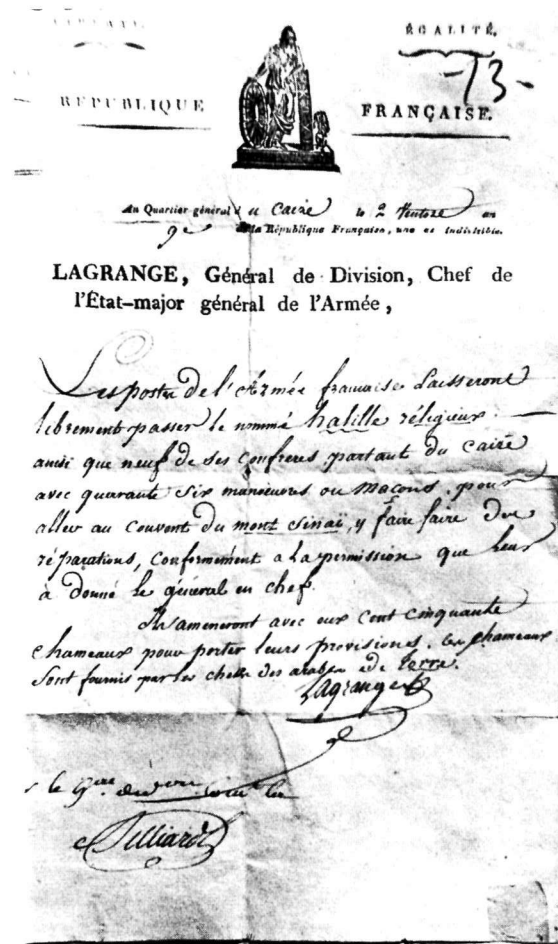 ÉGALITÉ.
-13-
RÉPUBLIQUE FRANÇAISE.
Au Quartier général Caire le 2 Ventose an
9e de la République Française, une et indivisible.
LAGRANGE, Général de Division, Chef de
l'État-major général de l'Armée,
Les postes de l'Armée française laisseront
librement passer le nommé halille réligieux
ainsi que neuf de ses confreres partant du Caire
avec quarante six manœuvres ou maçons pour
aller au Couvent du mont sinaï, y faire faire des
réparations, Conformément a la permission que leur
à donné le général en chef.
Ils ameneront avec eux cent cinquante
Chameaux pour porter leurs provisions. les chameaux
Sont fournis par les des arabes de
Lagrange
le